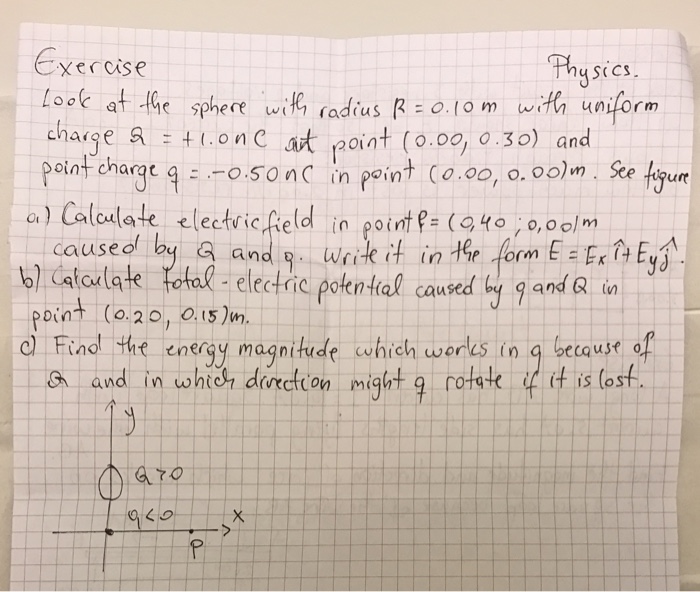 Exercise Physics.
Look at the sphere with radius R = 0.10 m with uniform
charge Q = +1.0 nC at point (0.00, 0.30) and
point charge q = -0.50 nC in point (0.00, 0.00)m. See figure
a) Calculate electric field in point P = (0,40 ; 0,00)m
caused by Q and q. Write it in the form E = Ex î + Ey ĵ.
b) Calculate total-electric potential caused by q and Q in
point (0.20, 0.15)m.
c) Find the energy magnitude which works in q because of
Q and in which direction might q rotate if it is lost.
y
Q>0
q<0 x
P